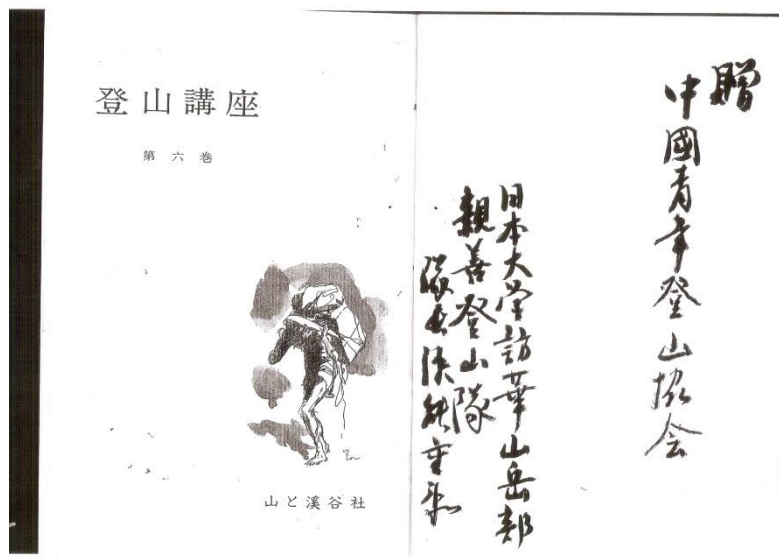 登山講座
第六巻
山と溪谷社
贈
中國青年登山協会
日本大学訪華山岳部
親善登山隊
隊長